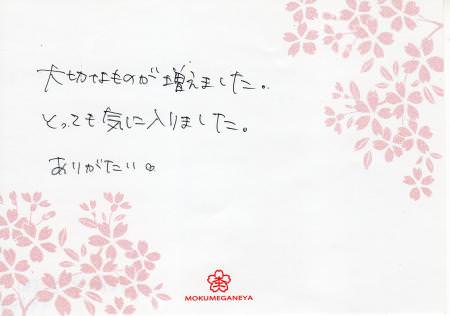 大切なものが増えました。
とっても気に入りました。
ありがたい。
MOKUMEGANEYA